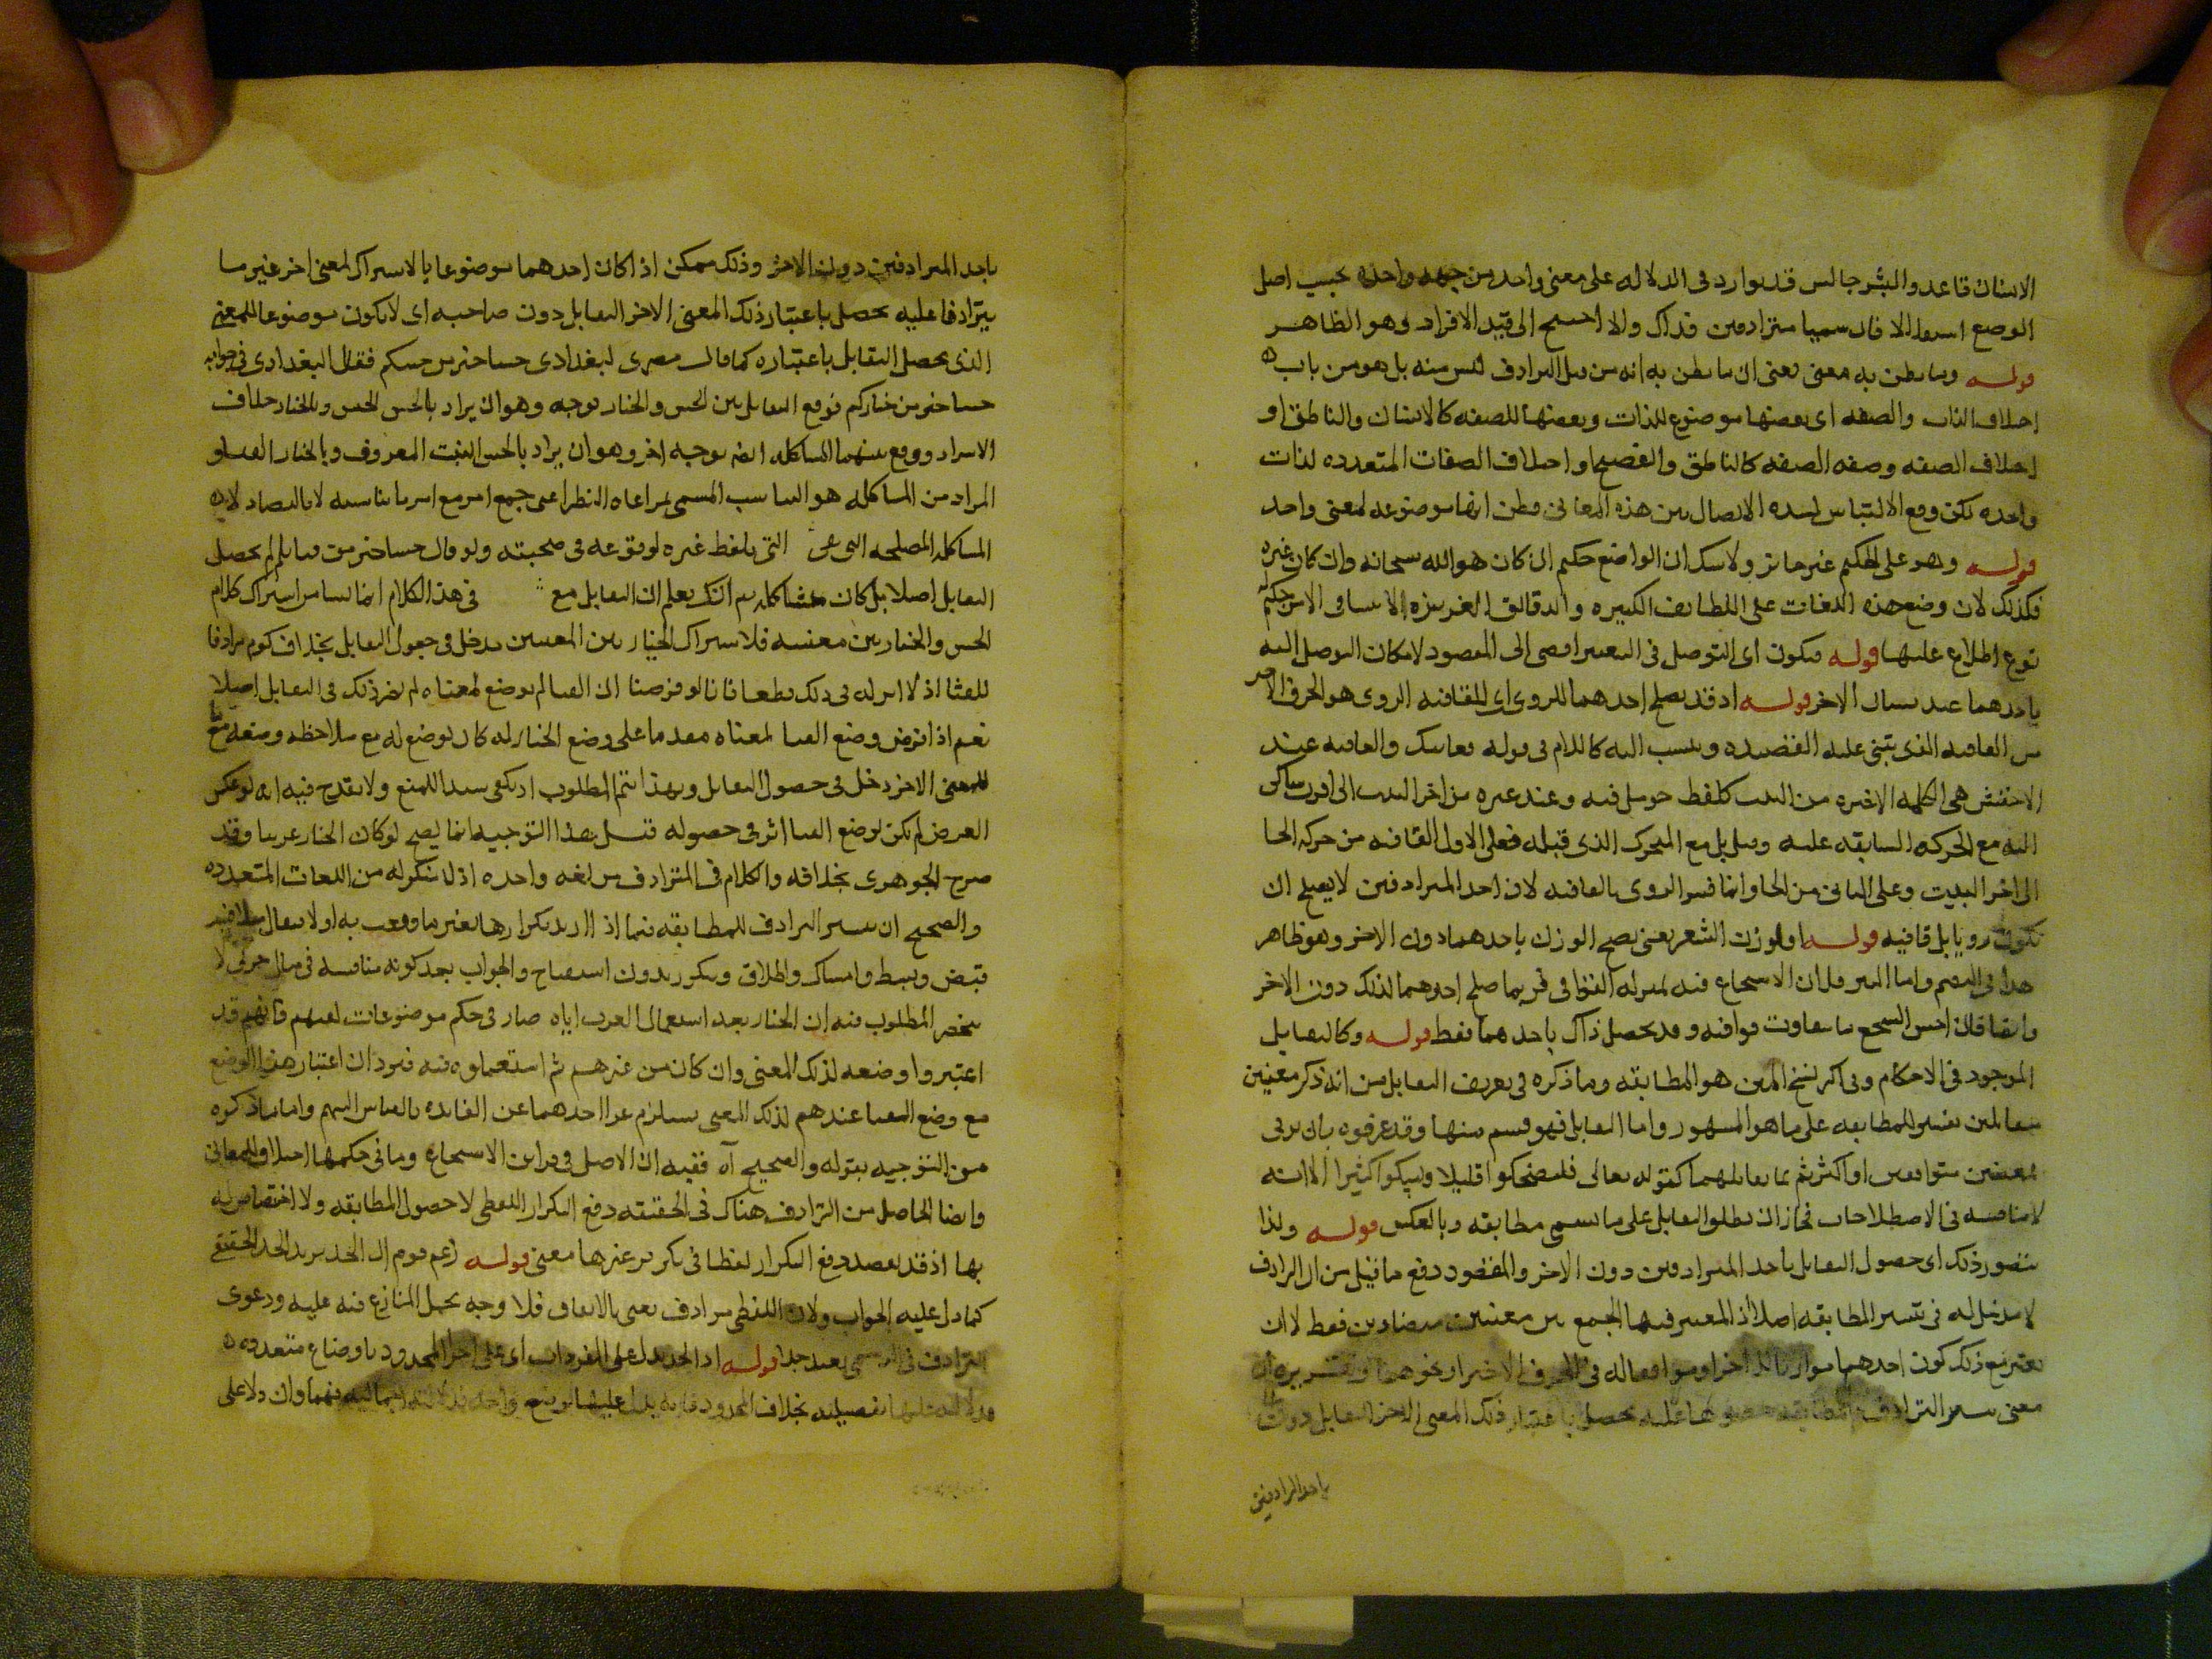 الانسان قاعد والبشر جالس قد توارد فى الدلاله على معنى واحد من جهه واحده بحسب اصل
الوضع استعمالا فان سميا مترادفين فذاك والا احتيج الى قيد الافراد وهو الظاهر
قوله وما يظن به معنى يعنى ان ما يظن به انه من قبيل الترادف ليس منه بل هو من باب
اختلاف الذات والصفه اى بعضها موضوع للذات وبعضها للصفه كالانسان والناطق او
اختلاف الصفه وصفه الصفه كالناطق والفصيح او اختلاف الصفات المتعدده لذات
واحده لكن وقع الالتباس لشده الاتصال بين هذه المعانى فظن انها موضوعه لمعنى واحد
قوله وهو على الحكيم غير جائز ولا شك ان الواضع حكيم ان كان هو الله سبحانه وان كان غيره
فكذلك لان وضع هذه اللغات على اللطايف الكبيره والدقائق الغزيره
نوع اطلاع عليها قوله فيكون اى التوصل فى التعبير افضى الى المقصود لامكان التوصل اليه
باحدهما عند نسيان الاخر قوله اذ قد يصلح احدهما للروى اى للقافيه الروى هو الحرف الاخير
من القافيه الذى يبتنى عليه القصيده وينسب اليه كاللام فى قوله قفا نبك والقافيه عند
الاخفش هى الكلمه الاخيره من البيت كلفظ حومل فيه وعند غيره من اخر البيت الى اقرب ساكن
اليه مع الحركه السابقه عليه وقيل بل مع المتحرك الذى قبله فعلى الاول القافيه من حركه الحا
الى اخر البيت وعلى الثانى من الحا وانما فسر الروى بالقافيه لان احد المترادفين لا يصلح ان
يكون رويا بل قافيه قوله او لوزن الشعر يعنى يصح الوزن باحدهما دون الاخر وهو ظاهر
هذا فى النظم واما النثر فلان الاسجاع فيه بمنزله القوافى فربما صلح احدهما لذلك دون الاخر
وايضا فان احسن السجع ما تفاوت قوافيه وقد يحصل ذاك باحدهما فقط قوله وكالتقابل
الموجود فى الاحكام وفى اكثر نسخ المتن هو المطابقه وما ذكره فى تعريف التقابل من انه ذكر معنيين
متقابلين تفسير للمطابقه على ما هو المشهور واما التقابل فهو قسم منها وقد عرفوه بان يوتى
بمعنيين متوافقين او اكثر ثم بما يقابلهما كقوله تعالى فليضحكوا قليلا وليبكوا كثيرا الا انه
لا مناقشه فى الاصطلاحات فجاز ان يطلق التقابل على ما يسمى مطابقه وبالعكس قوله ولذا
يتصور ذلك اى حصول التقابل باحد المترادفين دون الاخر والمقصود دفع ما قيل من ان الترادف
لا مدخل له فى تيسر المطابقه اصلا اذ المعتبر فيها الجمع بين معنيين متضادين فقط لا ان
يعتبر مع ذلك كون احدهما موازنا للاخر او موافقا له فى الحرف الاخير او نحوهما وتقريره ان
معنى تيسر الترادف للمطابقه حصولها عليه يحصل باعتبار ذلك المعنى الاخر التقابل دون
باحد المرادفين
باحد المترادفين دون الاخر وذلك ممكن اذا كان احدهما موضوعا بالاشتراك لمعنى اخر غير ما
يترادفا عليه يحصل باعتبار ذلك المعنى الاخر التقابل دون صاحبه اى لا يكون موضوعا للمعنى
الذى يحصل التقابل باعتباره كما قال مصرى لبغدادى خسنا خير من خسكم فقال البغدادى فى جوابه
خسنا خير من خياركم فوقع التقابل بين الخس والخيار بوجه وهو ان يراد بالخس الخسيس وبالخيار خلاف
الاشرار ووقع بينهما المشاكله ايضا بوجه اخر وهو ان يراد بالخس النبت المعروف وبالخيار القثا و
المراد من المشاكله هو التناسب المسمى بمراعاه النظير اعنى جمع امر مع امر ما يناسبه لا بالتضاد لان
المشاكله المصطلحه التى هى التى بلفظ غيره لوقوعه فى صحبته ولو قال خسنا خير من قثائكم لم يحصل
التقابل اصلا بل كان مشاكله ثم انك تعلم ان التقابل مع فى هذا الكلام انما نشا من اشتراك كلام
الخس والخيار بين معنييه فلاشتراك الخيار بين المعنيين مدخل فى حصول التقابل بخلاف كونه مرادفا
للقثا اذ لا اثر له فى ذلك قطعا فانا لو فرضنا ان القثا لم يوضع لمعناه لم يضر ذلك فى التقابل اصلا
نعم اذا فرض وضع القثا لمعناه مقدما على وضع الخيار له كان لوضع له مع ملاحظه وضعه
للمعنى الاخر دخل فى حصول التقابل وبهذا يتم المطلوب اذ يكفى سندا للمنع ولا يقدح فيه انه لو عكس
الفرض لم يكن لوضع القثا اثر فى حصوله قيل هذا التوجيه انما يصح لو كان الخيار عربيا وقد
صرح الجوهرى بخلافه والكلام فى المترادف من لغه واحده اذ لا ننكر له من اللغات المتعدده
والصحيح ان تيسر الترادف للمطابقه فيما اذا اريد تكرارها بغير ما وقعت به اولا يقال
قبض وبسط وامساك واطلاق ويتكرر بدون استقباح والجواب بعد كونه مناقشه فى مثال جزئى لا
ينحصر المطلوب فيه ان الخيار بعد استعمال العرب اياه صار فى حكم موضوعات لغتهم فانهم قد
اعتبروا وضعه لذلك المعنى وان كان من غيرهم ثم استعملوه فيه فيرد ان اعتبار هذا الوضع
مع وضع القثا عندهم لذلك المعنى يستلزم عراء احدهما عن الفايده بالقياس اليهم واما ما ذكره
من التوجيه بقوله والصحيح آه ففيه ان الاصل فى قراين الاسجاع وما فى حكمها اختلاف المعانى
وايضا الحاصل من الترادف هناك فى الحقيقه دفع التكرار اللفظى لا حصول المطابقه ولا اختصاص له
بها اذ قد يقصد دفع التكرار لفظا فى تكرير غيرها معنى قوله زعم قوم ان الحد يريد الحد الحقيقى
كما دل عليه الجواب ولان اللفظى مرادف يعنى بالاتفاق فلا وجه لحمل المتنازع فيه عليه ودعوى
الترادف فى الرسمى بعيد جدا قوله اذ الحد يدل على المفردات اى على اجزا المحدود باوضاع متعدده
بخلاف المحدود فانه يدل عليها بوضع واحد